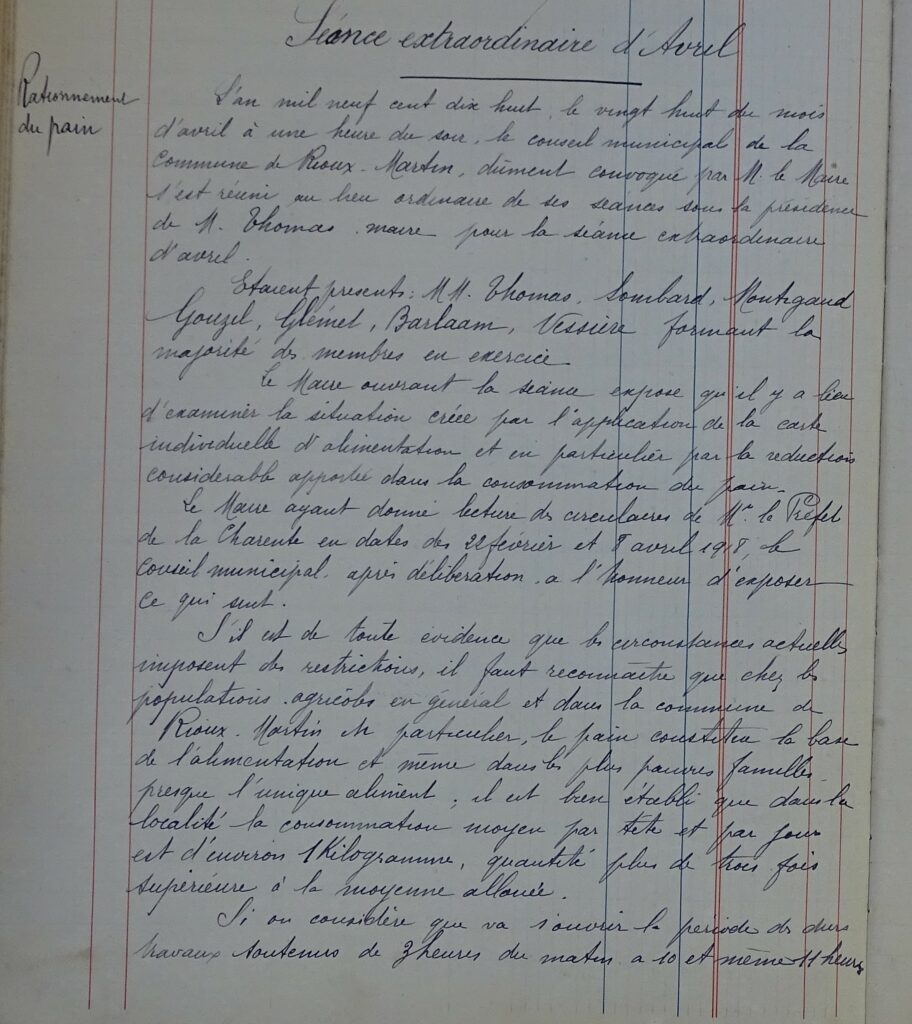 Séance extraordinaire d'Avril
Rationnement
du pain
L'an mil neuf cent dix huit, le vingt huit du mois
d'avril à une heure du soir, le conseil municipal de la
Commune de Rioux-Martin, dûment convoqué par M. le Maire
s'est réuni au lieu ordinaire de ses séances sous la présidence
de M. Thomas, maire pour la séance extraordinaire
d'avril.
Etaient présents: MM. Thomas, Lombard, Montigaud
Gouzel, Glémet, Barlaam, Vessière formant la
majorité des membres en exercice
Le Maire ouvrant la séance expose qu'il y a lieu
d'examiner la situation créée par l'application de la carte
individuelle d'alimentation et en particulier par la réduction
considérable apportée dans la consommation du pain.
Le Maire ayant donné lecture des circulaires de Mr. le Préfet
de la Charente en dates des 22 février et 8 avril 1918, le
Conseil municipal, après délibération, a l'honneur d'exposer
ce qui suit.
S'il est de toute évidence que les circonstances actuelles
imposent des restrictions, il faut reconnaître que chez les
populations agricoles en général et dans la commune de
Rioux-Martin en particulier, le pain constitue la base
de l'alimentation et même dans les plus pauvres familles
presque l'unique aliment; il est bien établi que dans la
localité la consommation moyen par tête et par jour
est d'environ 1 Kilogramme, quantité plus de trois fois
supérieure à la moyenne allouée.
Si on considère que va s'ouvrir la période des durs
travaux soutenus de 3 heures du matin a 10 et même 11 heures